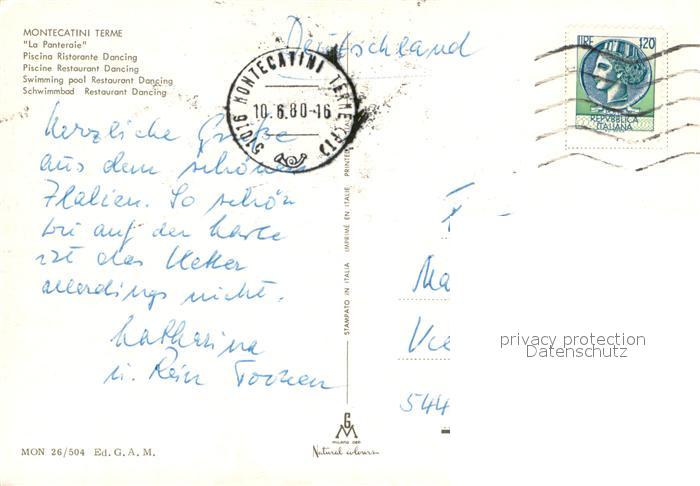 MONTECATINI TERME
"La Panteraie"
Piscina Ristorante Dancing
Piscine Restaurant Dancing
Swimming pool Restaurant Dancing
Schwimmbad Restaurant Dancing
Deutschland
51016 MONTECATINI TERME (PT)
10.6.80-16
LIRE 120
REPVBBLICA
ITALIANA
Herzliche Grüße
aus dem schönen
Italien. So schön
wie auf der Karte
ist das Wetter
allerdings nicht.
Katharina
u. Rein
STAMPATO IN ITALIA IMPRIMÉ EN ITALIE PRINTED
Ma
544
privacy protection
Datenschutz
G
M
MILANO
Natural colours
MON 26/504 Ed. G. A. M.